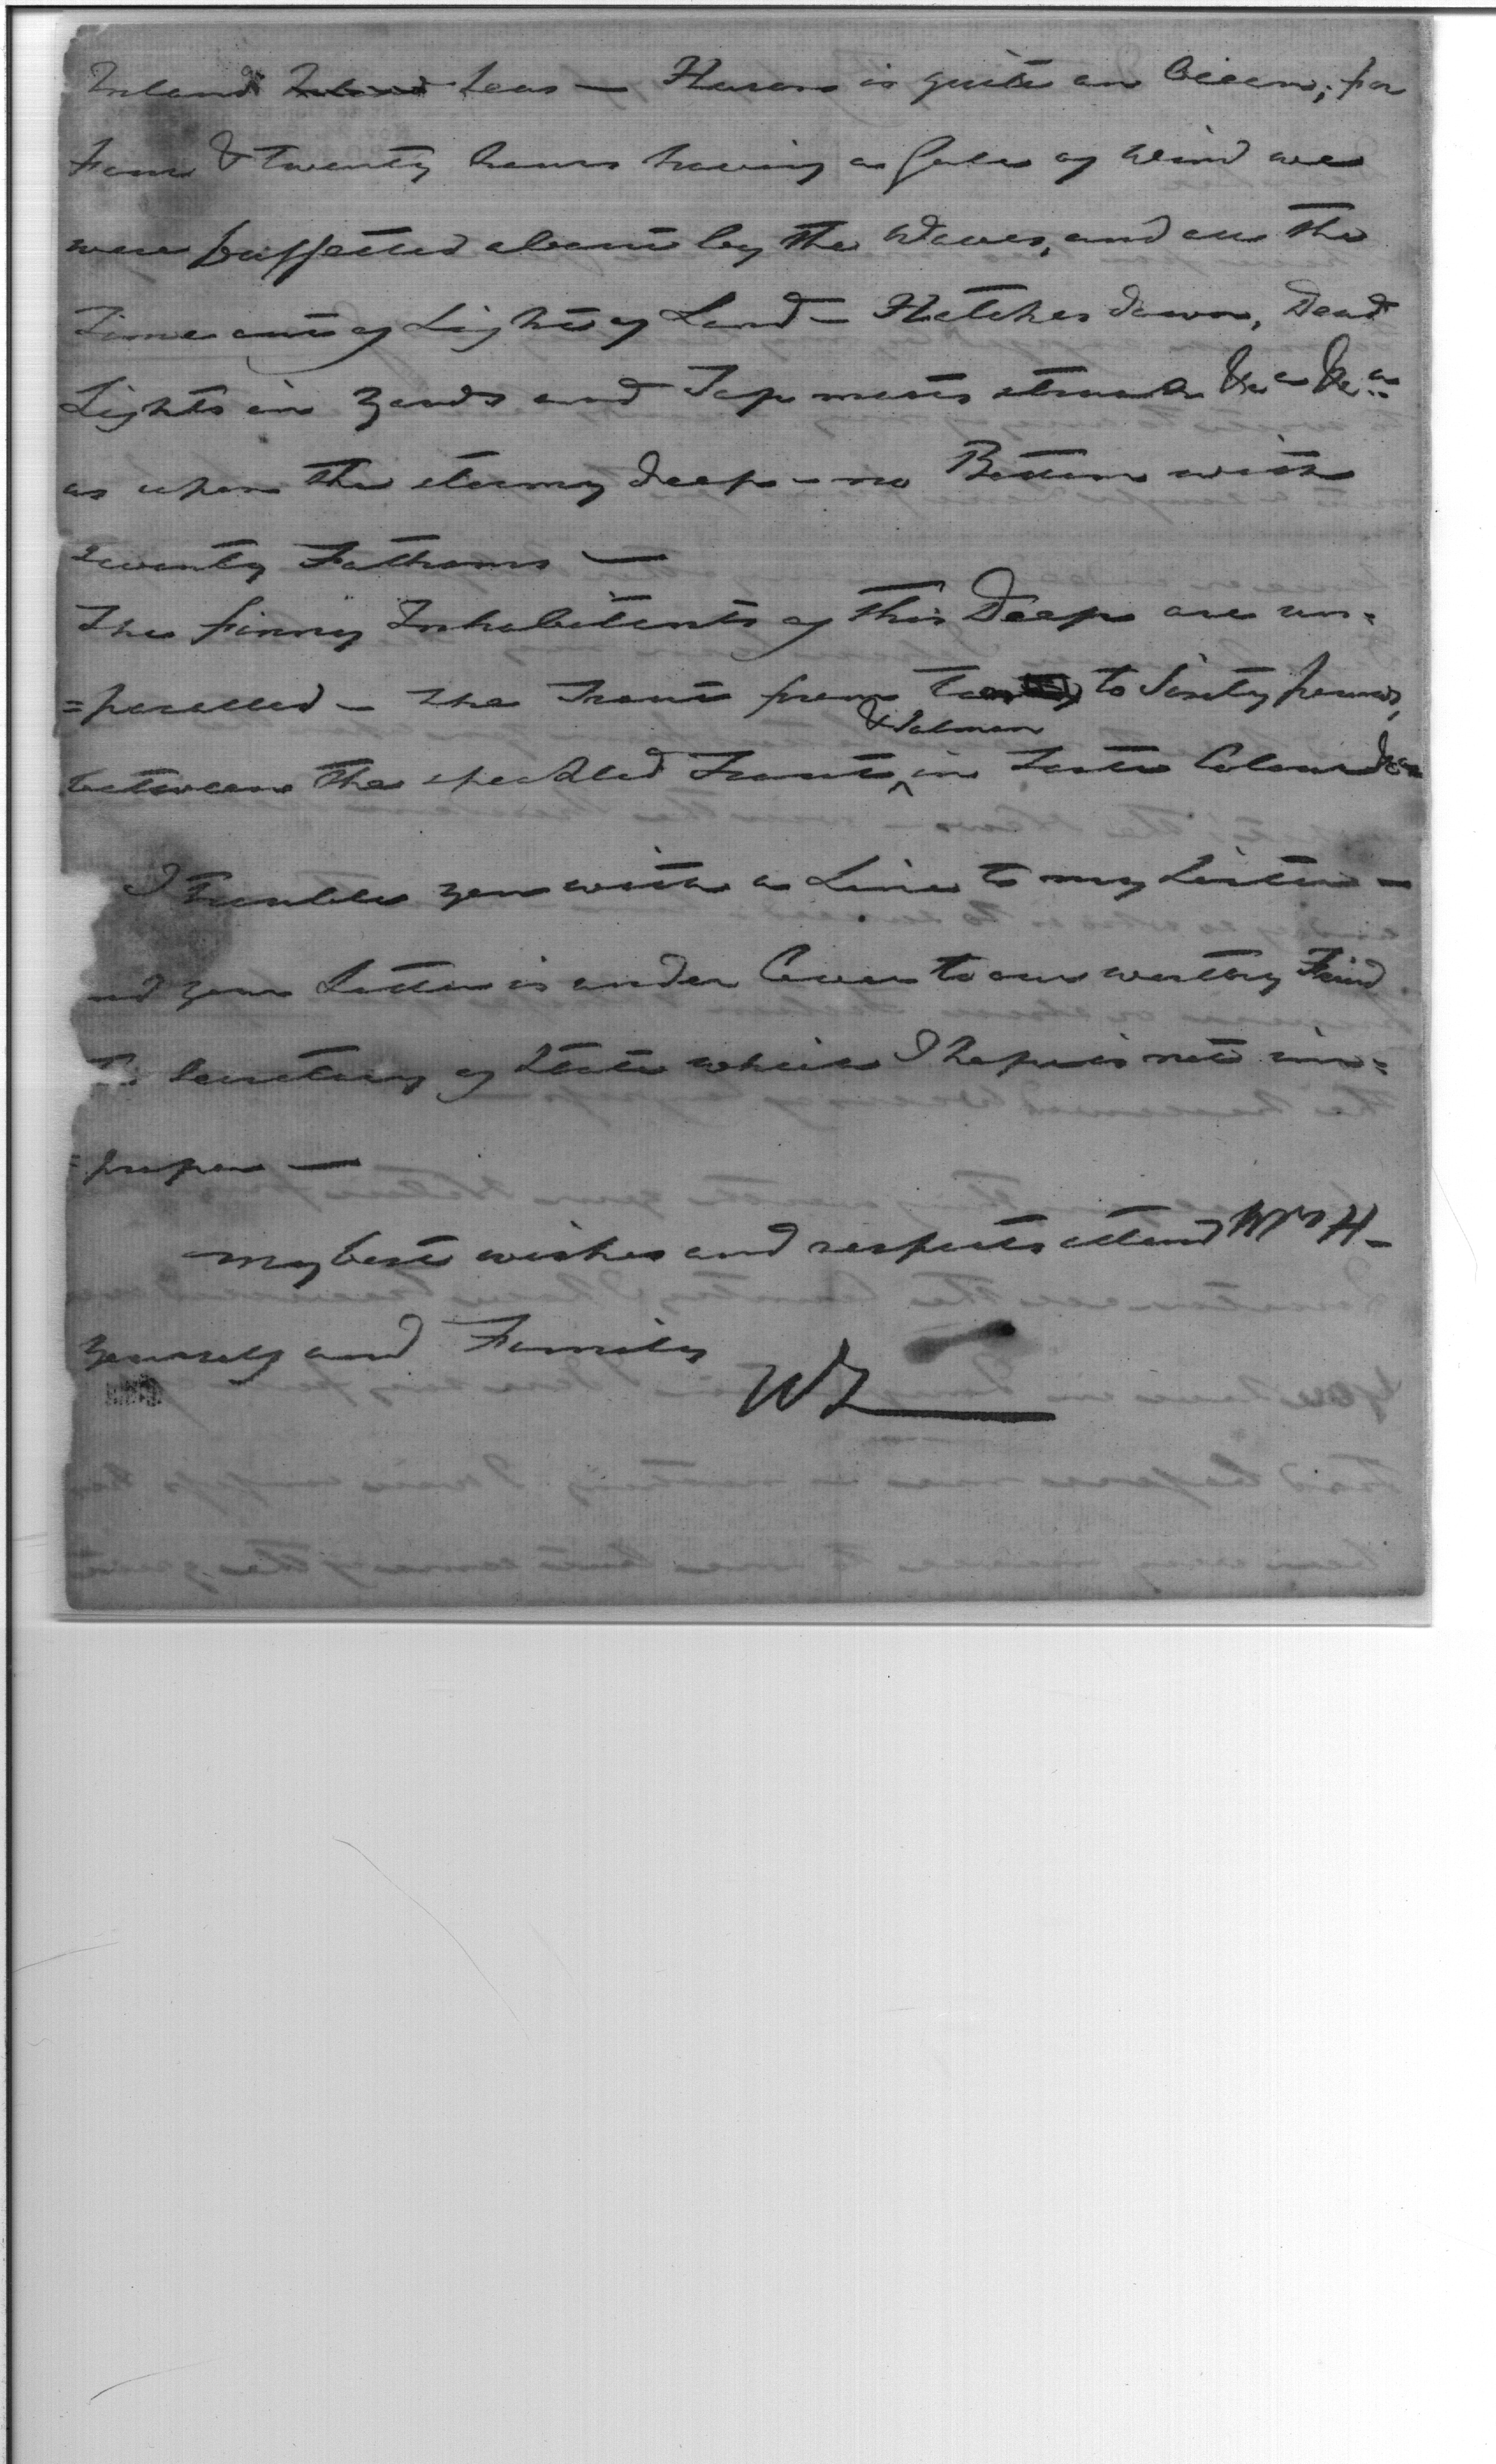 Inland Inland Seas — Huron is quite an Ocean; for
Four & twenty hours having a Gale of Wind we
were buffetted about by the Waves, and all the
Time out of Sight of Land — Hatches down, Dead
Lights in Yards and Top masts struck &ca &ca
as upon the stormy deep — no Bottom with
seventy Fathoms —
The finny Inhabitants of this Deep are un=
=paralled — The Trout from Ten to Sixty pounds,
between the speckled Trout & Salmon in Taste Colour &ca
I trouble you with a Line to my Sister —
nd your Letter is under Cover to our worthy Frind
Secretary of State which I hope is not im=
=proper —
my best wishes and respects attend Mrs H—
yourself and Family